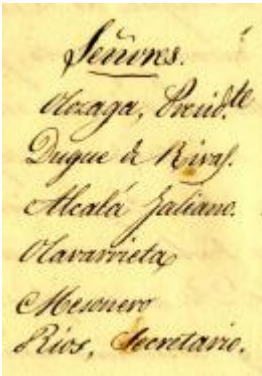 Señores.
Olozaga, Presid.te
Duque de Rivas.
Alcalá Galiano.
Olavarrieta
Mesonero
Ríos, Secretario.